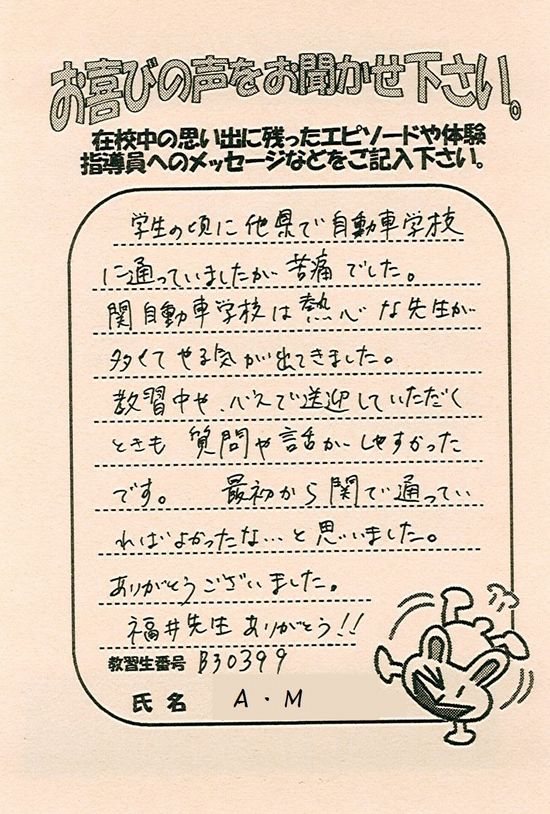 お喜びの声をお聞かせ下さい。
在校中の思い出に残ったエピソードや体験
指導員へのメッセージなどをご記入下さい。
学生の頃に他県で自動車学校
に通っていましたが苦痛でした。
関自動車学校は熱心な先生が
多くてやる気が出てきました。
教習中や、バスで送迎していただく
ときも質問や話がしやすかった
です。 最初から関で通ってい
ればよかったな…と思いました。
ありがとうございました。
福井先生ありがとう!!
教習生番号 B30399
氏名 A・M